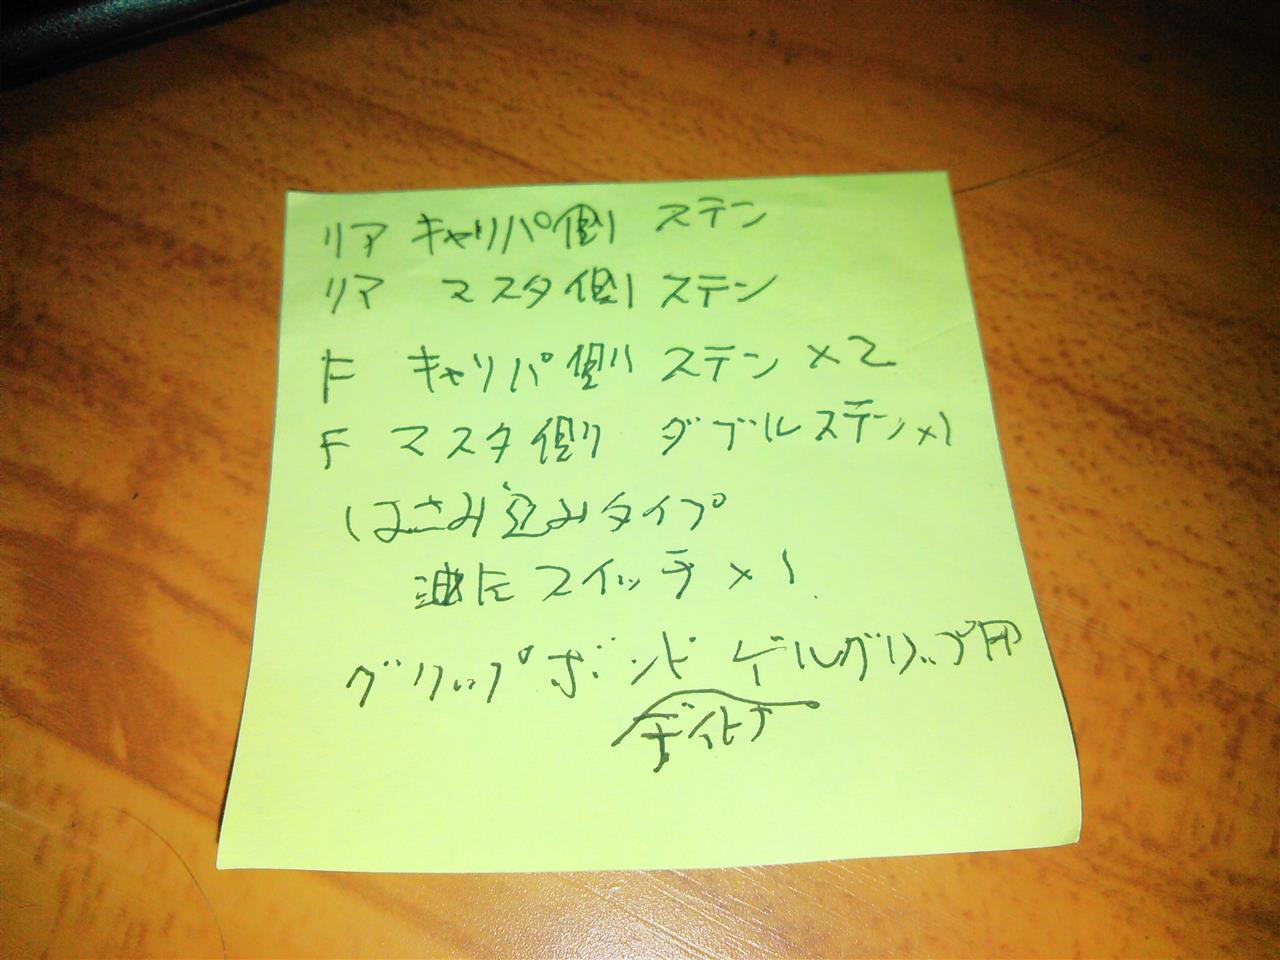 リア キャリパ側 ステン
リア マスタ側 ステン
F キャリパ側 ステン×2
F マスタ側 ダブルステン×1
はさみ込みタイプ
油圧スイッチ×1
グリップボンド ゲルグリップ用
デイトナ